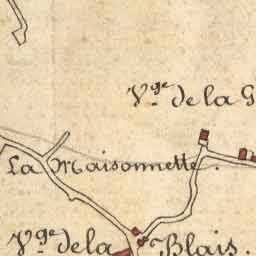 V.ge de la G
La Maisonnette.
V.ge de la Blais.